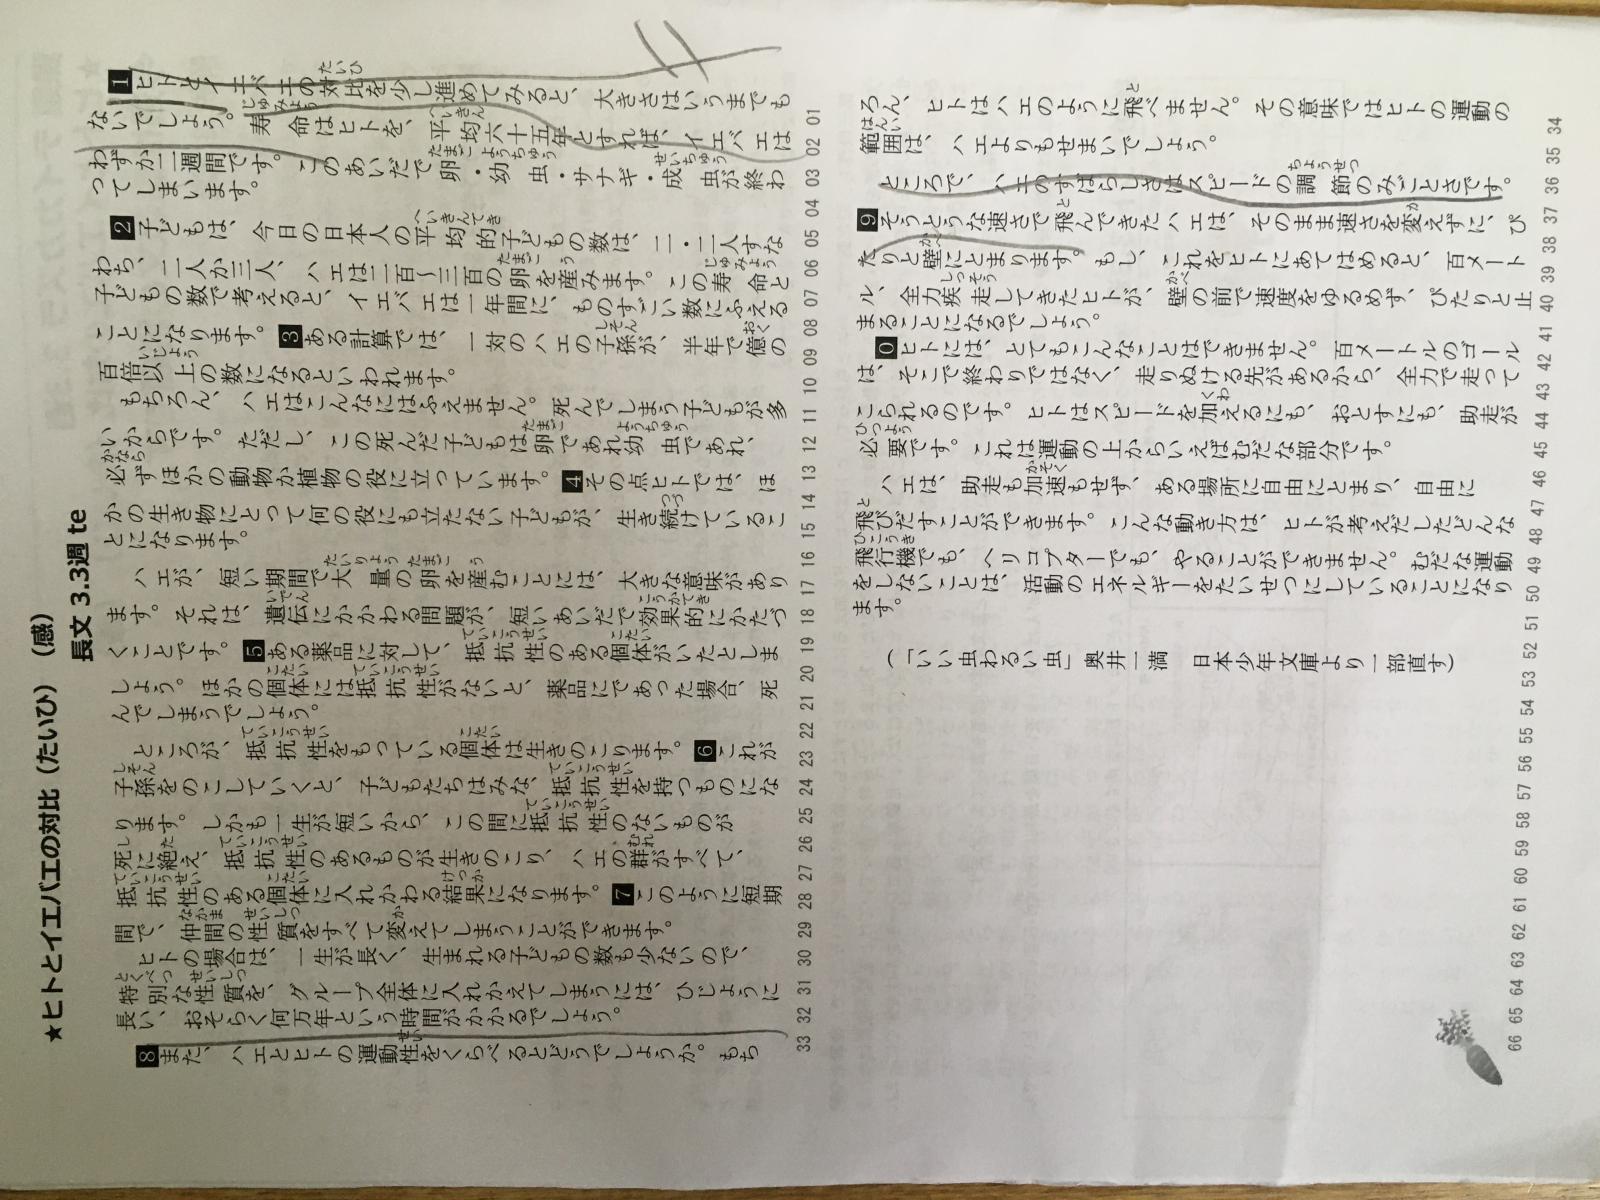 ★ヒトとイエバエの対比（たいひ）（感）
長文 3.3週 te
1ヒトとイエバエの対比を少し進めてみると、大きさはいうまでも
ないでしょう。寿命はヒトを、平均六十五年とすれば、イエバエは
わずか二週間です。このあいだで卵・幼虫・サナギ・成虫が終わ
ってしまいます。
2子どもは、今日の日本人の平均的子どもの数は、二・二人すな
わち、二人か三人、ハエは二百〜三百の卵を産みます。この寿命と
子どもの数で考えると、イエバエは一年間に、ものすごい数にふえる
ことになります。3ある計算では、一対のハエの子孫が、半年で億の
百倍以上の数になるといわれます。
もちろん、ハエはこんなにはふえません。死んでしまう子どもが多
いからです。ただし、この死んだ子どもは卵であれ幼虫であれ、
必ずほかの動物か植物の役に立っています。4その点ヒトでは、ほ
かの生き物にとって何の役にも立たない子どもが、生き続けているこ
とになります。
ハエが、短い期間で大量の卵を産むことには、大きな意味があり
ます。それは、遺伝にかかわる問題が、短いあいだで効果的にかたづ
くことです。5ある薬品に対して、抵抗性のある個体がいたとしま
しょう。ほかの個体には抵抗性がないと、薬品にであった場合、死
んでしまうでしょう。
ところが、抵抗性をもっている個体は生きのこります。6これが
子孫をのこしていくと、子どもたちはみな、抵抗性を持つものにな
ります。しかも一生が短いから、この間に抵抗性のないものが
死に絶え、抵抗性のあるものが生きのこり、ハエの群がすべて、
抵抗性のある個体に入れかわる結果になります。7このように短期
間で、仲間の性質をすべて変えてしまうことができます。
ヒトの場合は、一生が長く、生まれる子どもの数も少ないので、
特別な性質を、グループ全体に入れかえてしまうには、ひじょうに
長い、おそらく何万年という時間がかかるでしょう。
8また、ハエとヒトの運動性をくらべるとどうでしょうか。もち
01 02 03 04 05 06 07 08 09 10 11 12 13 14 15 16 17 18 19 20 21 22 23 24 25 26 27 28 29 30 31 32 33
ろん、ヒトはハエのように飛べません。その意味ではヒトの運動の
範囲は、ハエよりもせまいでしょう。
ところで、ハエのすばらしさはスピードの調節のみごとさです。
9そうとうな速さで飛んできたハエは、そのまま速さを変えずに、ぴ
たりと壁にとまります。もし、これをヒトにあてはめると、百メート
ル、全力疾走してきたヒトが、壁の前で速度をゆるめず、ぴたりと止
まることになるでしょう。
0ヒトには、とてもこんなことはできません。百メートルのゴール
は、そこで終わりではなく、走りぬける先があるから、全力で走って
こられるのです。ヒトはスピードを加えるにも、おとすにも、助走が
必要です。これは運動の上からいえばむだな部分です。
ハエは、助走も加速もせず、ある場所に自由にとまり、自由に
飛びだすことができます。こんな動き方は、ヒトが考えだしたどんな
飛行機でも、ヘリコプターでも、やることができません。むだな運動
をしないことは、活動のエネルギーをたいせつにしていることになり
ます。
（「いい虫わるい虫」奥井一満　日本少年文庫より一部直す）
34 35 36 37 38 39 40 41 42 43 44 45 46 47 48 49 50 51 52 53 54 55 56 57 58 59 60 61 62 63 64 65 66